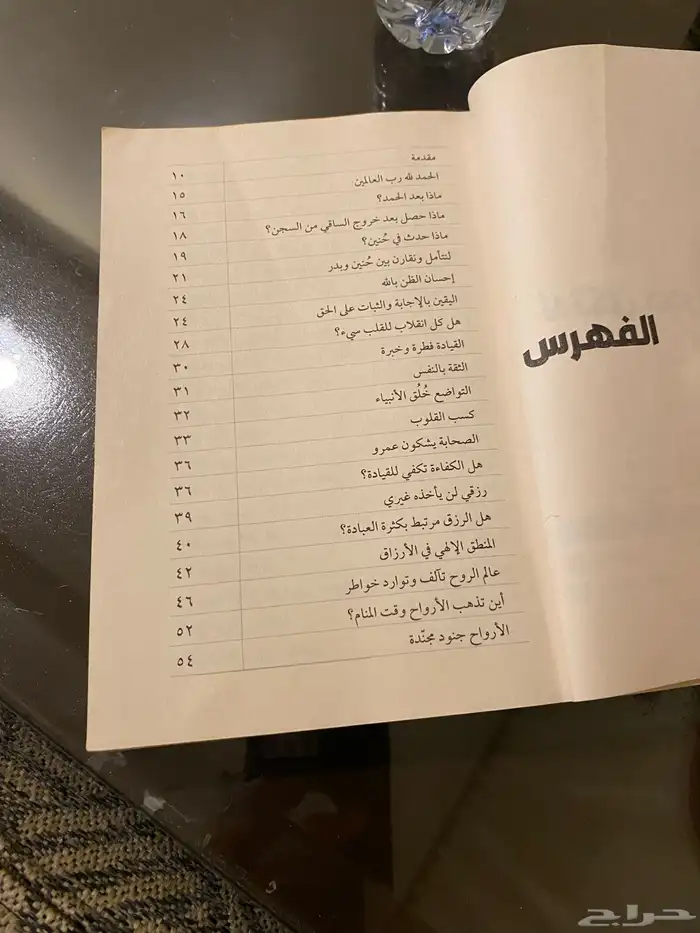 الفهرس
مقدمة ١٠
الحمد لله رب العالمين ١٥
ماذا بعد الحمد؟ ١٦
ماذا حصل بعد خروج الساقي من السجن؟ ١٨
ماذا حدث في حُنين؟ ١٩
لنتأمل ونقارن بين حُنين وبدر ٢١
إحسان الظن بالله ٢٤
اليقين بالإجابة والثبات على الحق ٢٤
هل كل انقلاب للقلب سيء؟ ٢٨
القيادة فطرة وخبرة ٣٠
الثقة بالنفس ٣١
التواضع خُلُق الأنبياء ٣٢
كسب القلوب ٣٣
الصحابة يشكون عمرو ٣٦
هل الكفاءة تكفي للقيادة؟ ٣٦
رزقي لن يأخذه غيري ٣٩
هل الرزق مرتبط بكثرة العبادة؟ ٤٠
المنطق الإلهي في الأرزاق ٤٢
عالم الروح تآلف وتوارد خواطر ٤٦
أين تذهب الأرواح وقت المنام؟ ٥٢
الأرواح جنود مجنّدة ٥٤
حراج